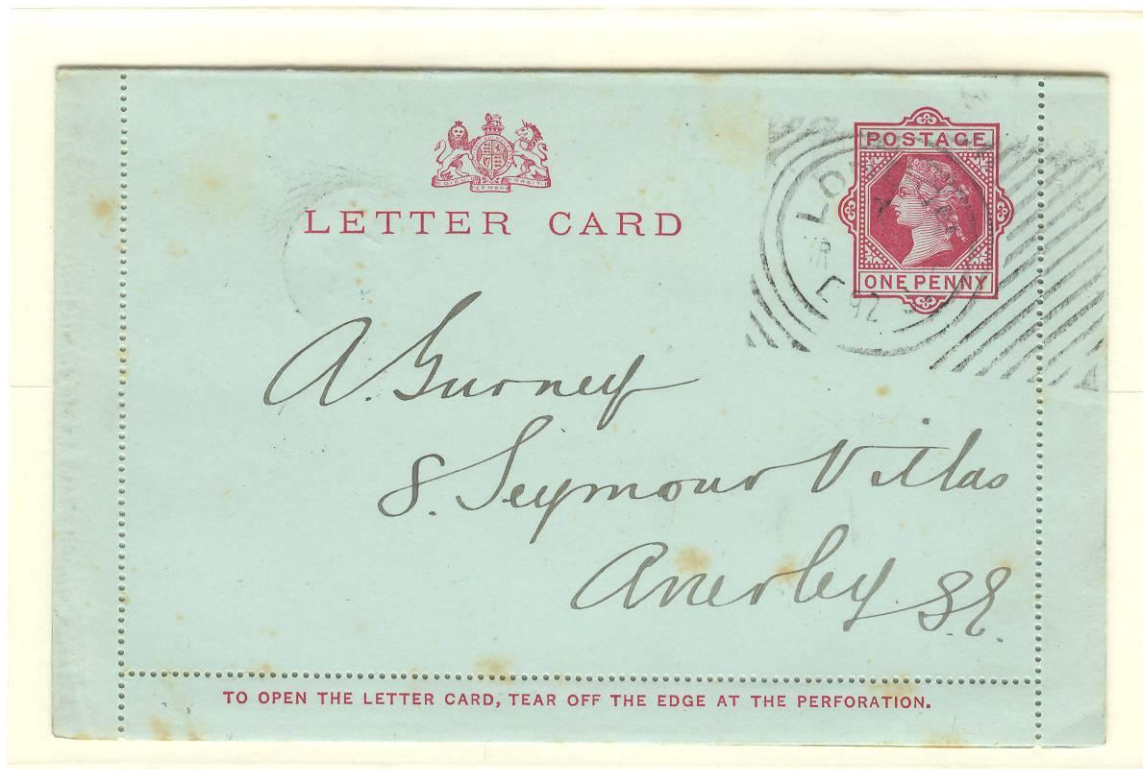 LETTER CARD
POSTAGE
ONE PENNY
92
A. Gurney
8. Seymour Villas
Anerley. S.E.
TO OPEN THE LETTER CARD, TEAR OFF THE EDGE AT THE PERFORATION.